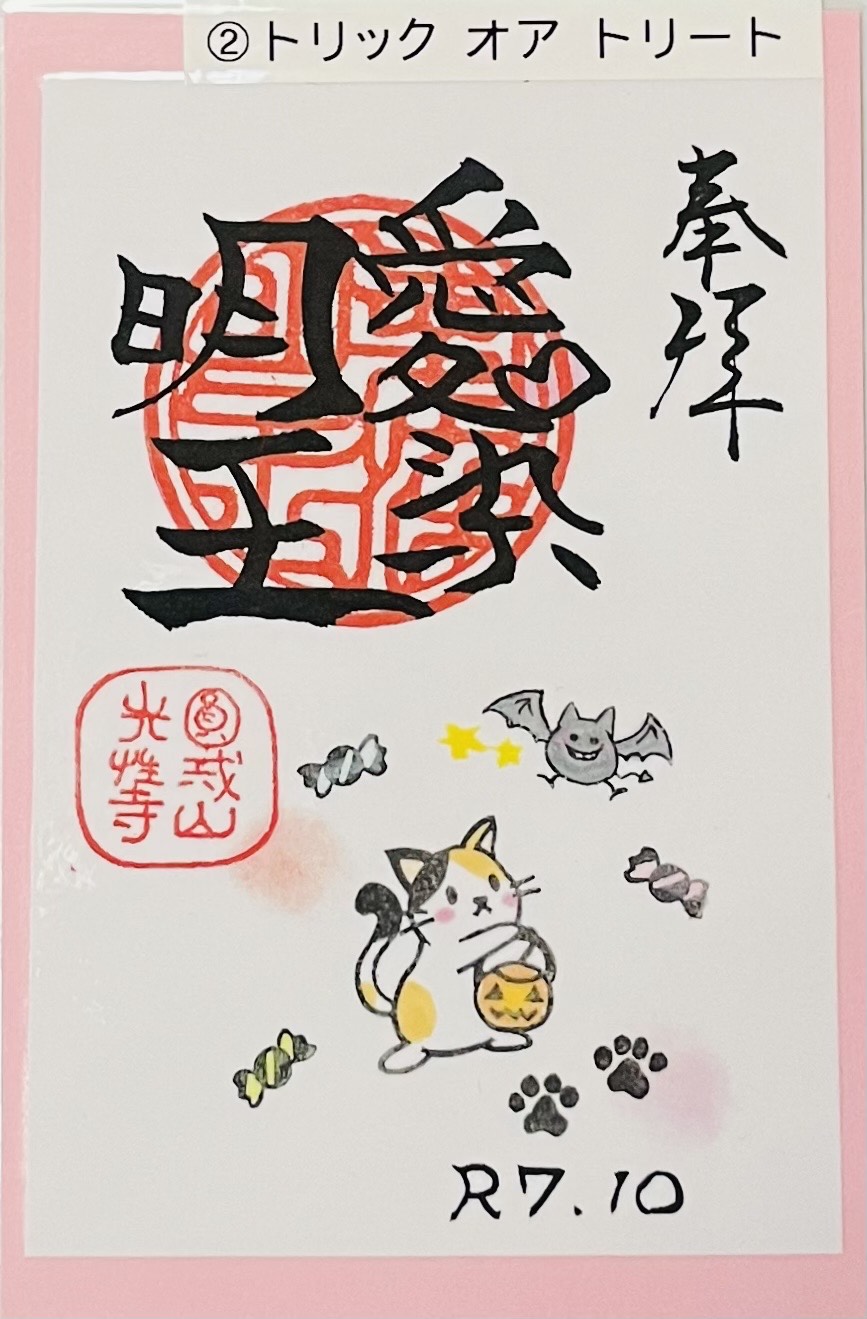 ②トリック オア トリート
奉拝
愛染
明王
圓戒山
光性寺
R7.10